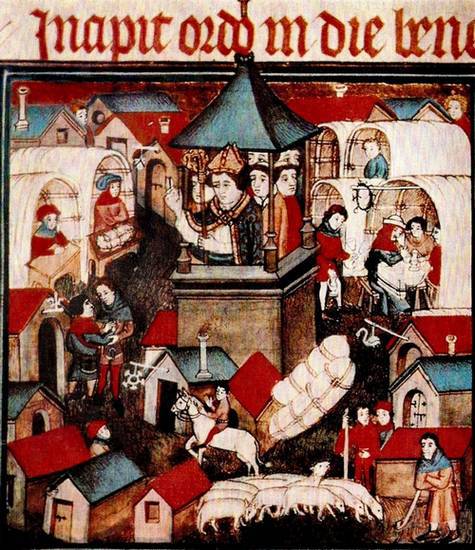 Incipit ordo in die ben